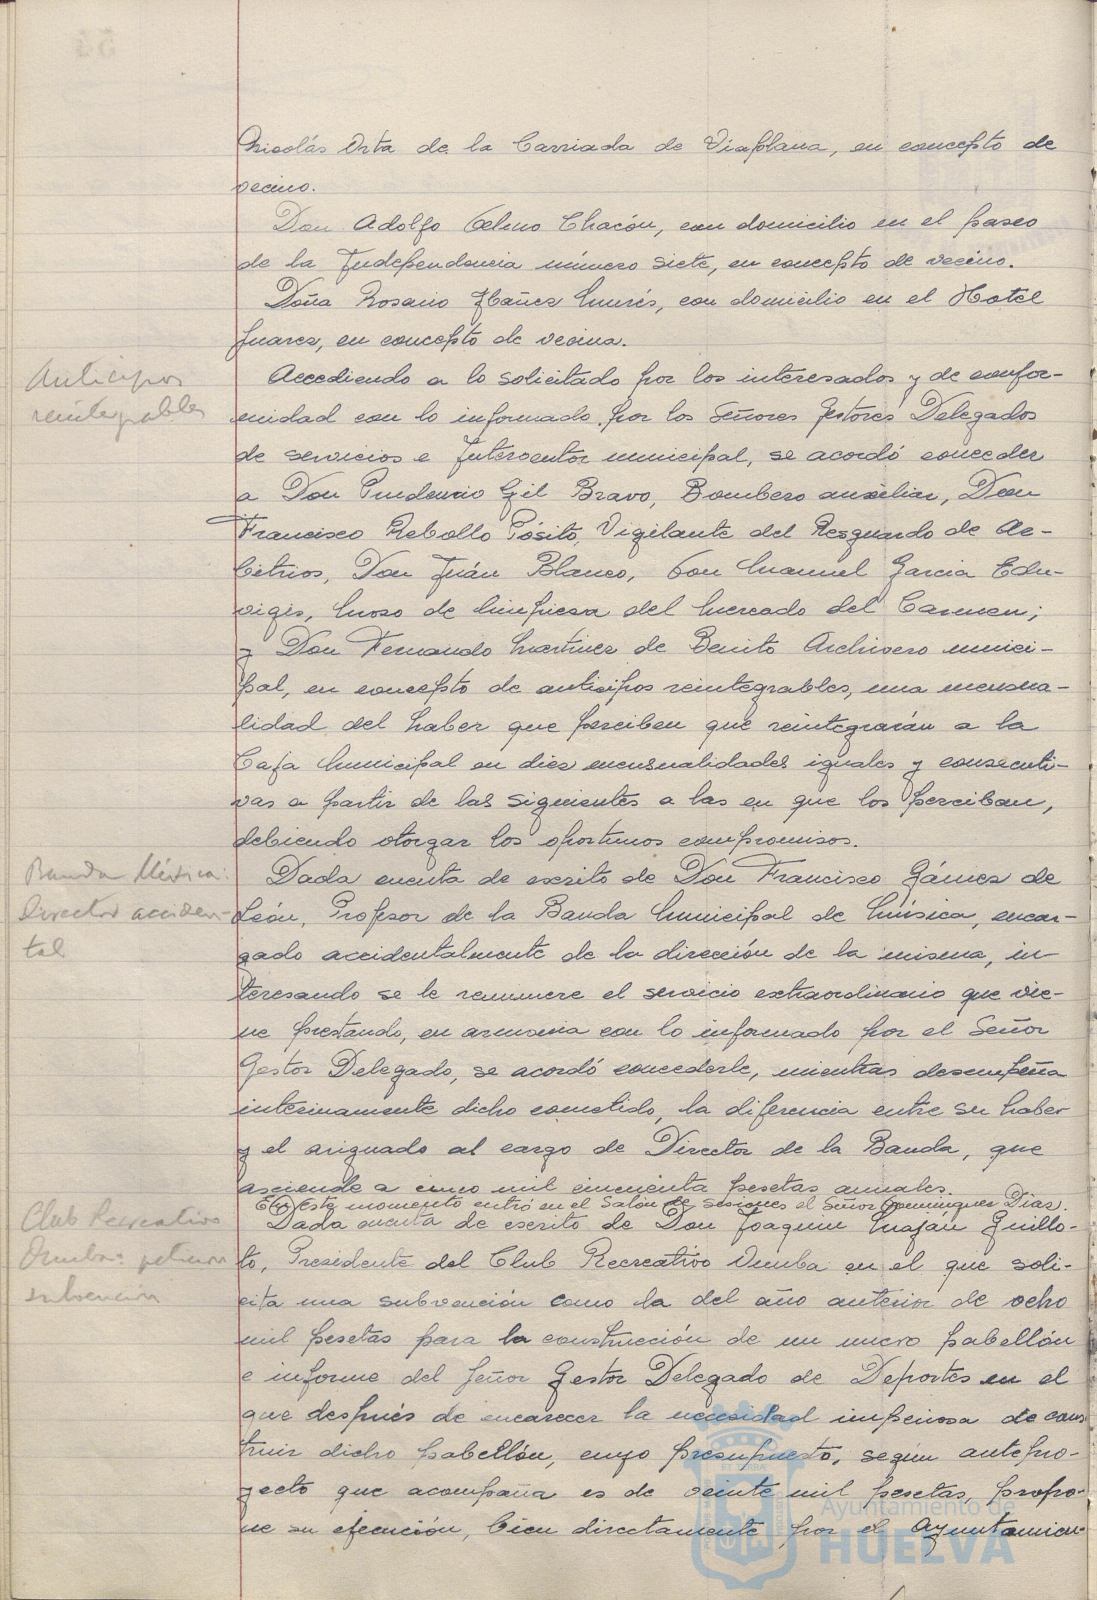 Nicolás Orta de la Barriada de Viaplana, en concepto de
vecino.
Don Adolfo Chacón, con domicilio en el paseo
de la Independencia número siete, en concepto de vecino.
Doña Rosario Ibañez con domicilio en el Hotel
Juarez, en concepto de vecina.
Anticipos
reintegrables
Accediendo a lo solicitado por los interesados y de confor-
midad con lo informado por los Señores Gestores Delegados
de servicios e Interventor municipal, se acordó conceder
a Don Prudencio Gil Bravo, Bombero auxiliar, Don
Francisco Rebollo Pósito, Vigilante del Resguardo de Ar-
bitrios, Don Juán Blanco, Don Manuel Garcia Edu-
vigis, Mozo de limpieza del Mercado del Carmen;
y Don Fernando Martinez de Benito Archivero munici-
pal, en concepto de anticipos reintegrables, una mensua-
lidad del haber que perciben que reintegrarán a la
Caja Municipal en diez mensualidades iguales y consecuti-
vas a partir de las siguientes a las en que los perciban,
debiendo otorgar los oportunos compromisos.
Banda Música:
Director acciden-
tal
Dada cuenta de escrito de Don Francisco Gámez de
León, Profesor de la Banda Municipal de Música, encar-
gado accidentalmente de la dirección de la misma, in-
teresando se le remunere el servicio extraordinario que vie-
ne prestando, en armonia con lo informado por el Señor
Gestor Delegado, se acordó concederle, mientras desempeña
interinamente dicho cometido, la diferencia entre su haber
y el asignado al cargo de Director de la Banda, que
asciende a cinco mil cincuenta pesetas anuales.
En este momento entró en el Salón de sesiones el Señor Dominguez Diaz.
Club Recreativo
Onuba: peticion
subvencion
Dada cuenta de escrito de Don Joaquin Guillo-
to, Presidente del Club Recreativo Onuba en el que soli-
cita una subvención como la del año anterior de ocho
mil pesetas para la construcción de un nuevo pabellón
e informe del Señor Gestor Delegado de Deportes en el
que después de encarecer la necesidad imperiosa de cons
truir dicho pabellón, cuyo presupuesto, según antepro-
yecto que acompaña es de veinte mil pesetas, propo-
ne su ejecución, bien directamente por el Ayuntamien-
Ayuntamiento de
HUELVA